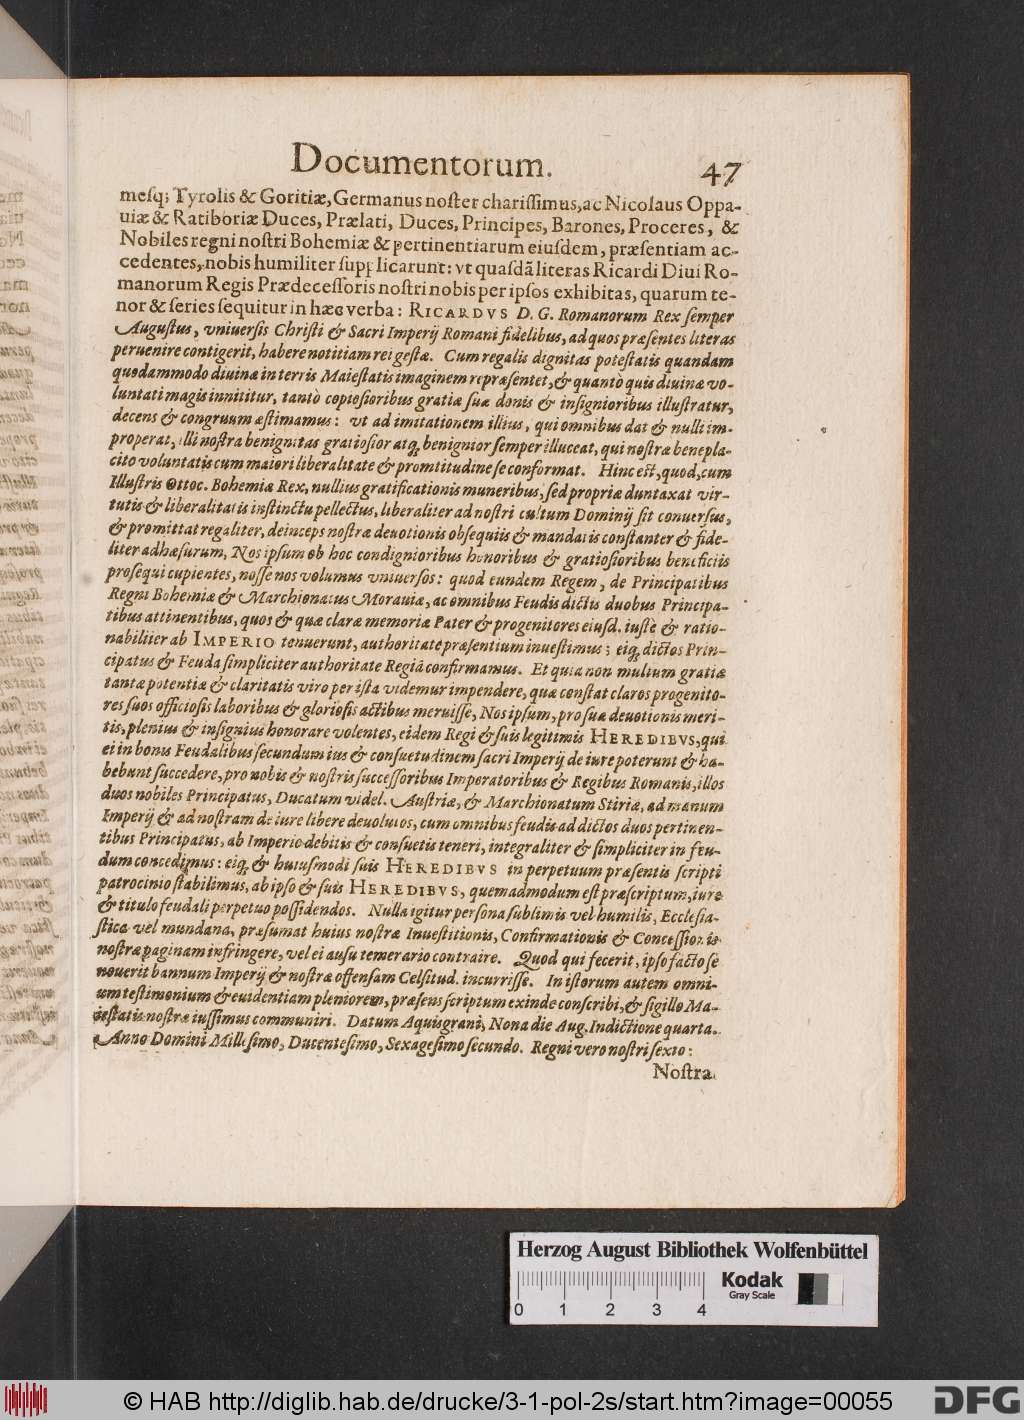 Documentorum. 47
mesq; Tyrolis & Goritiæ, Germanus noster charissimus, ac Nicolaus Oppa-
uiæ & Ratiboriæ Duces, Prælati, Duces, Principes, Barones, Proceres, &
Nobiles regni nostri Bohemiæ & pertinentiarum eiusdem, præsentiam ac-
cedentes, nobis humiliter supplicarunt: vt quasdã literas Ricardi Diui Ro-
manorum Regis Prædecessoris nostri nobis per ipsos exhibitas, quarum te-
nor & series sequitur in hæc verba: RICARDVS D. G. Romanorum Rex semper
Augustus, vniuersis Christi & Sacri Imperij Romani fidelibus, ad quos præsentes literas
peruenire contigerit, habere notitiam rei gestæ. Cum regalis dignitas potestatis quandam
quodammodo diuinæ in terris Maiestatis imaginem repræsentet, & quantò quis diuinæ vo-
luntati magis innititur, tantò copiosioribus gratiæ suæ donis & insignioribus illustratur,
decens & congruum æstimamus: vt ad imitationem illius, qui omnibus dat & nulli im-
properat, illi nostra benignitas gratiosior atq; benignior semper illuceat, qui nostræ benepla-
cito voluntatis cum maiori liberalitate & promtitudine se conformat. Hinc est, quod, cum
Illustris Ottoc. Bohemiæ Rex, nullius gratificationis muneribus, sed propriæ duntaxat vir-
tutis & liberalitatis instinctu pellectus, liberaliter ad nostri cultum Dominij sit conuersus,
& promittat regaliter, deinceps nostræ deuotionis obsequiis & mandatis constanter & fide-
liter adhæsurum, Nos ipsum ob hoc condignioribus honoribus & gratiosioribus beneficiis
prosequi cupientes, nosse nos volumus vniuersos: quod eundem Regem, de Principatibus
Regni Bohemiæ & Marchionatus Morauiæ, ac omnibus Feudis dictis duobus Principa-
tibus attinentibus, quos & quæ claræ memoriæ Pater & progenitores eiusd. iustè & ratio-
nabiliter ab IMPERIO tenuerunt, authoritate præsentium inuestimus; eiq; dictos Prin-
cipatus & Feuda simpliciter authoritate Regiâ confirmamus. Et quia non multum gratiæ
tantæ potentiæ & claritatis viro per ista videmur impendere, quæ constat claros progenito-
res suos officiosis laboribus & gloriosis actibus meruisse, Nos ipsum, pro suæ deuotionis meri-
tis, plenius & insignius honorare volentes, eidem Regi & suis legitimis HEREDIBVS, qui
ei in bonis Feudalibus secundum ius & consuetudinem sacri Imperij de iure poterunt & ha-
bebunt succedere, pro nobis & nostris successoribus Imperatoribus & Regibus Romanis, illos
duos nobiles Principatus, Ducatum videl. Austriæ, & Marchionatum Stiriæ, ad manum
Imperij & ad nostram de iure libere deuolutos, cum omnibus feudis ad dictos duos pertinen-
tibus Principatus, ab Imperio debitis & consuetis teneri, integraliter & simpliciter in feu-
dum concedimus: eiq; & huiusmodi suis HEREDIBVS in perpetuum præsentis scripti
patrocinio stabilimus, ab ipso & suis HEREDIBVS, quemadmodum est præscriptum, iure
& titulo feudali perpetuo possidendos. Nulla igitur persona sublimis vel humilis, Ecclesia-
stica vel mundana, præsumat huius nostræ Inuestitionis, Confirmationis & Concessionis
nostræ paginam infringere, vel ei ausu temerario contraire. Quod qui fecerit, ipso facto se
nouerit bannum Imperij & nostræ offensam Celsitud. incurrisse. In istorum autem omni-
um testimonium & euidentiam pleniorem, præsens scriptum exinde conscribi, & sigillo Ma-
iestatis nostræ iussimus communiri. Datum Aquisgrani, Nona die Aug. Indictione quarta.
Anno Domini Millesimo, Ducentesimo, Sexagesimo secundo. Regni vero nostri sexto:
Nostra
Herzog August Bibliothek Wolfenbüttel
Kodak
Gray Scale
0 1 2 3 4
© HAB http://diglib.hab.de/drucke/3-1-pol-2s/start.htm?image=00055
DFG